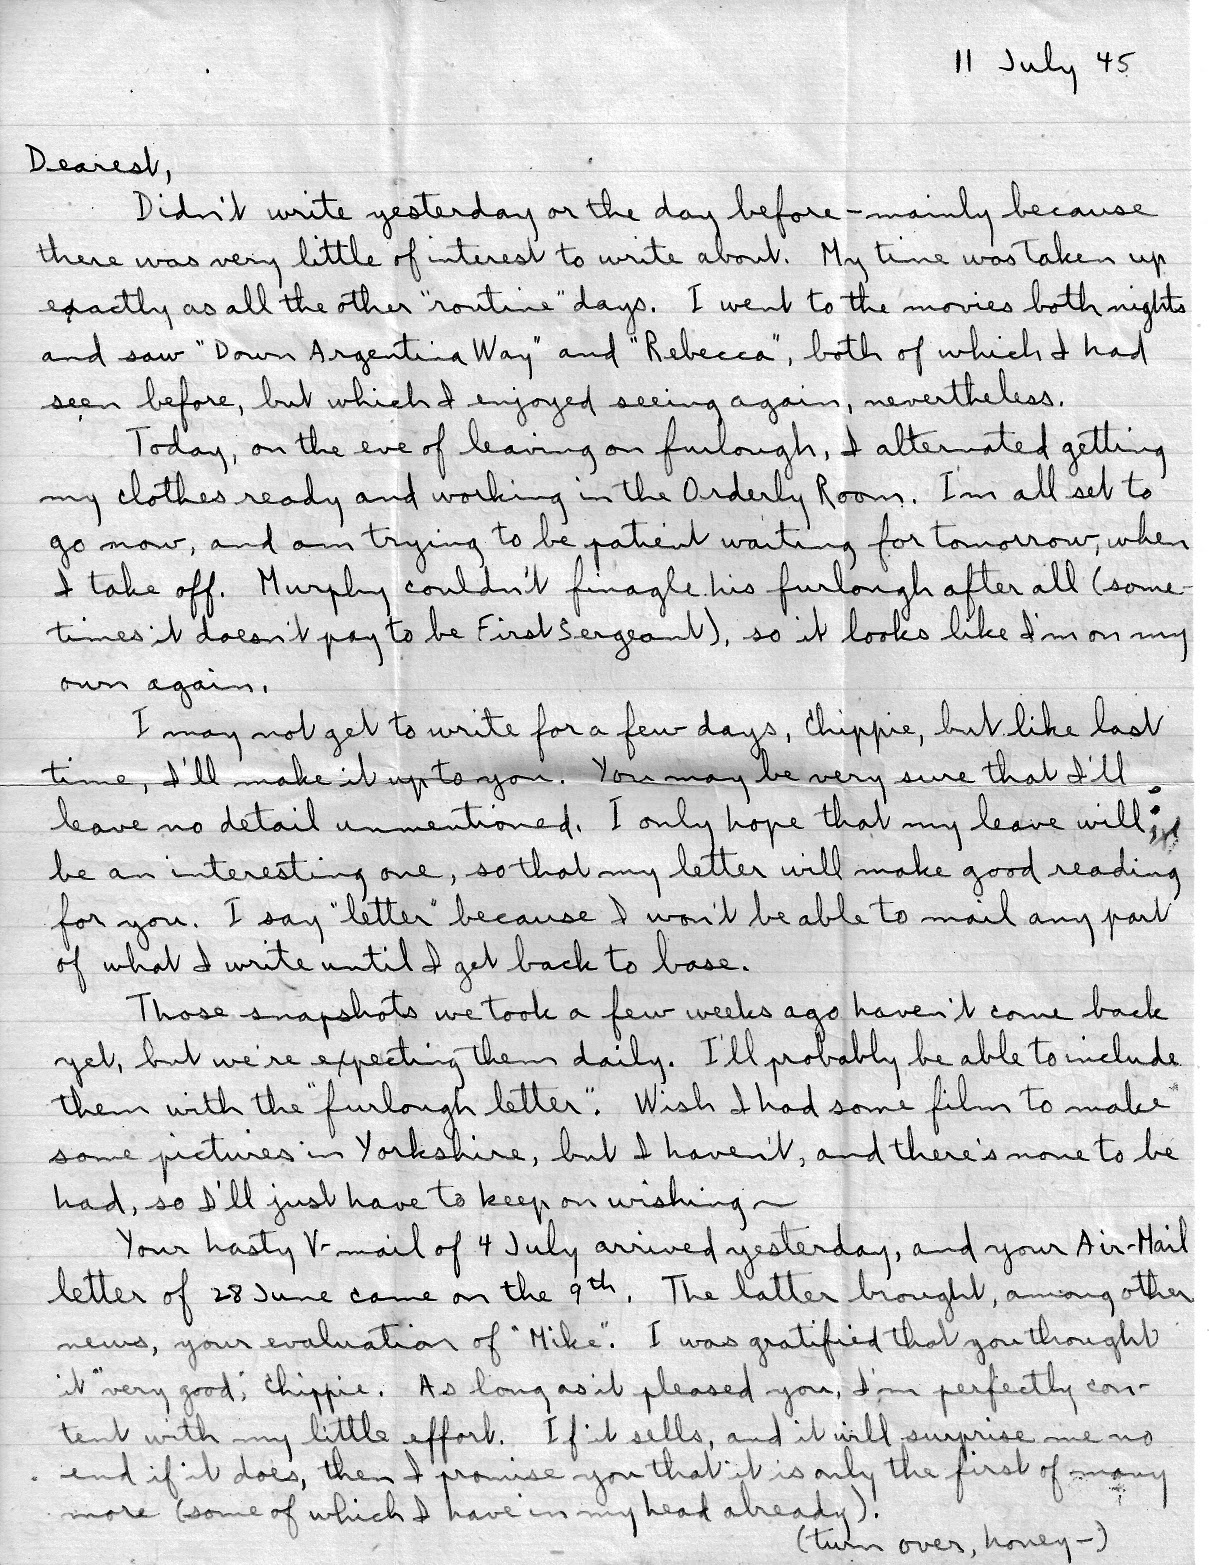 11 July 45
Dearest,
Didn't write yesterday or the day before – mainly because
there was very little of interest to write about. My time was taken up
exactly as all the other "routine" days. I went to the movies both nights
and saw "Down Argentina Way" and "Rebecca", both of which I had
seen before, but which I enjoyed seeing again, nevertheless.
Today, on the eve of leaving on furlough, I alternated getting
my clothes ready and working in the Orderly Room. I'm all set to
go now, and am trying to be patient waiting for tomorrow, when
I take off. Murphy couldn't finagle his furlough after all (some-
times it doesn't pay to be First Sergeant), so it looks like I'm on my
own again.
I may not get to write for a few days, Chippie, but like last
time, I'll make it up to you. You may be very sure that I'll
leave no detail unmentioned. I only hope that my leave will
be an interesting one, so that my letter will make good reading
for you. I say "letter" because I won't be able to mail any part
of what I write until I get back to base.
Those snapshots we took a few weeks ago haven't come back
yet, but we're expecting them daily. I'll probably be able to include
them with the "furlough letter". Wish I had some film to make
some pictures in Yorkshire, but I haven't, and there's none to be
had, so I'll just have to keep on wishing ~
Your hasty V-mail of 4 July arrived yesterday, and your Air-Mail
letter of 28 June came on the 9th. The latter brought, among other
news, your evaluation of "Mike". I was gratified that you thought
it "very good", Chippie. As long as it pleased you, I'm perfectly con-
tent with my little effort. If it sells, and it will surprise me no
end if it does, then I promise you that it is only the first of many
more (some of which I have in my head already).
(turn over, honey –)